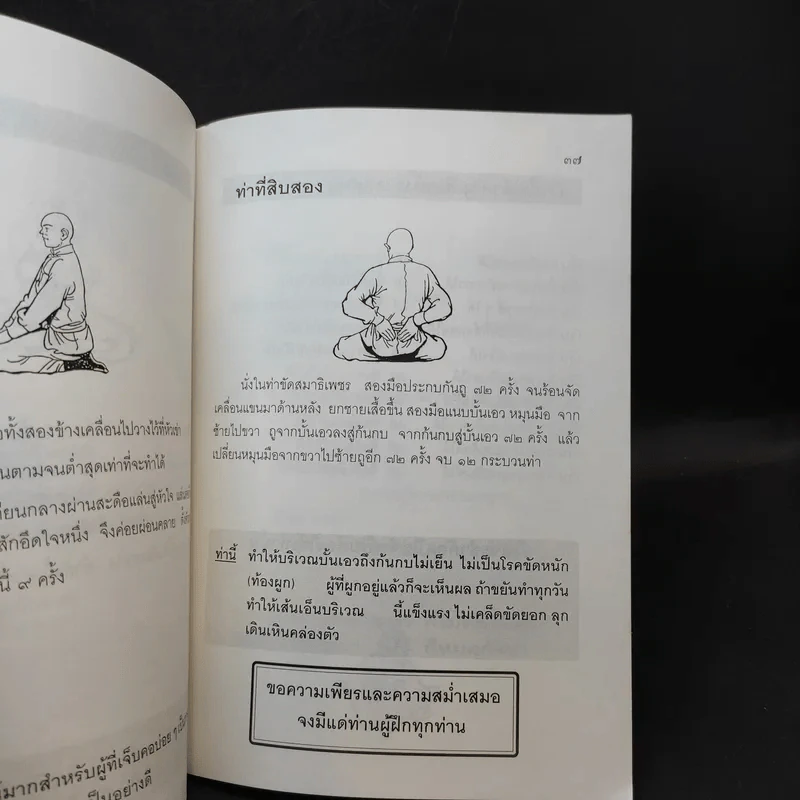 ทั้งสองข้างเคลื่อนไปวางไว้ที่หัวเข่า
นตามจนต่ำสุดเท่าที่จะทำได้
ยนกลางผ่านสะดือแล่นสู่หัวใจ
สักอึดใจหนึ่ง จึงค่อยผ่อนคลาย
นี้ ๙ ครั้ง
มากสำหรับผู้ที่เจ็บคอบ่อย ๆ
เป็นอย่างดี
๓๗
ท่าที่สิบสอง
นั่งในท่าขัดสมาธิเพชร สองมือประกบกันถู ๗๒ ครั้ง จนร้อนจัด
เคลื่อนแขนมาด้านหลัง ยกชายเสื้อขึ้น สองมือแนบบั้นเอว หมุนมือ จาก
ซ้ายไปขวา ถูจากบั้นเอวลงสู่ก้นกบ จากก้นกบสู่บั้นเอว ๗๒ ครั้ง แล้ว
เปลี่ยนหมุนมือจากขวาไปซ้ายถูอีก ๗๒ ครั้ง จบ ๑๒ กระบวนท่า
ท่านี้ ทำให้บริเวณบั้นเอวถึงก้นกบไม่เย็น ไม่เป็นโรคขัดหนัก
(ท้องผูก) ผู้ที่ผูกอยู่แล้วก็จะเห็นผล ถ้าขยันทำทุกวัน
ทำให้เส้นเอ็นบริเวณ นี้แข็งแรง ไม่เคล็ดขัดยอก ลุก
เดินเหินคล่องตัว
ขอความเพียรและความสม่ำเสมอ
จงมีแด่ท่านผู้ฝึกทุกท่าน